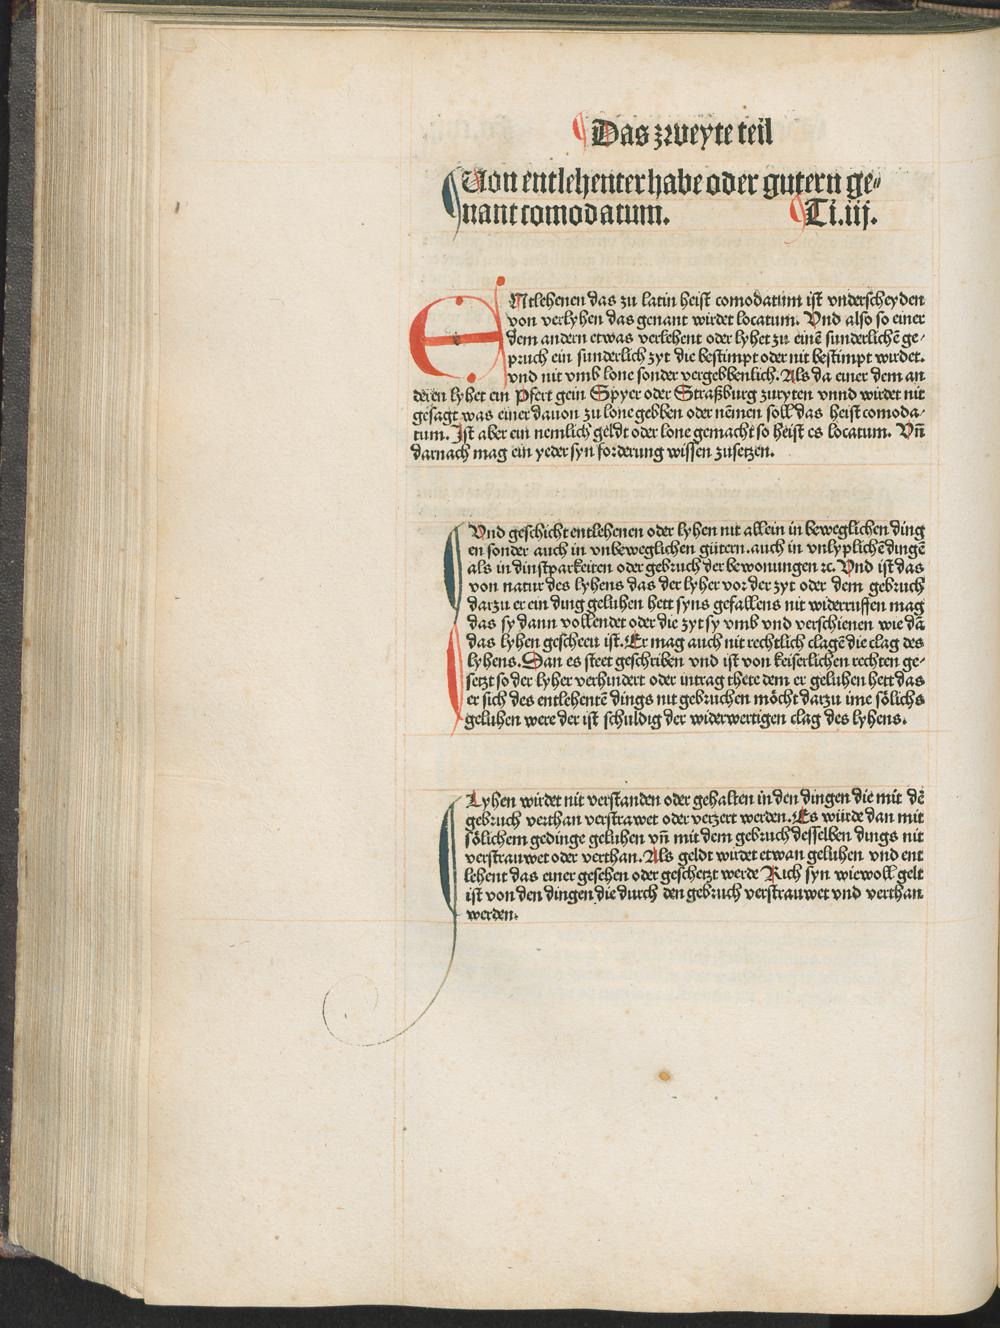 Das zweyte teil
Von entlehenter habe oder gutern ge⸗
nant comodatum. Ti. iij.
ENtlehenen das zu latin heist comodatum ist vnderscheyden
von verlyhen das genant wirdet locatum. Vnd also so einer
dem andern etwas verlehent oder lyhet zu einē sunderlichē ge⸗
pruch ein sunderlich zyt die bestimpt oder nit bestimpt wirdet.
vnd nit vmb lone sonder vergebbenlich. Als da einer dem an
deren lyhet ein Pfert gein Spyer oder Straßburg zuryten vnnd wirdet nit
gesagt was einer dauon zu lone gebben oder nēmen soll das heist comoda⸗
tum. Ist aber ein nemlich geldt oder lone gemacht so heist es locatum. Vñ
darnach mag ein yeder syn forderung wissen zusetzen.
Vnd geschicht entlehenen oder lyhen nit allein in beweglichen ding
en sonder auch in vnbeweglichen gütern. auch in vnlyplichē dingē
als in dinstparkeiten oder gebruch der bewonungen ꝛc. Vnd ist das
von natur des lyhens das der lyher vor der zyt oder dem gebruch
darzu er ein ding geluhen hett syns gefallens nit widerruffen mag
das sy dann vollendet oder die zyt sy vmb vnd verschienen wie dā
das lyhen gescheen ist. Er mag auch nit rechtlich clagē die clag des
lyhens. Dan es steet geschriben vnd ist von keiserlichen rechten ge⸗
setzt so der lyher verhindert oder intrag thete dem er geluhen hett das
er sich des entlehentē dings nit gebruchen möcht darzu ime sölichs
geluhen were der ist schuldig der widerwertigen clag des lyhens.
Lyhen wirdet nit verstanden oder gehalten in den dingen die mit dē
gebruch verthan verstrawet oder verzert werden. Es würde dan mit
sölichem gedinge geluhen vñ mit dem gebruch desselben dings nit
verstrauwet oder verthan. Als geldt wirdet etwan geluhen vnd ent
lehent das einer gesehen oder geschetzt werde Rich syn wiewoll gelt
ist von den dingen die durch den gebruch verstrauwet vnd verthan
werden.